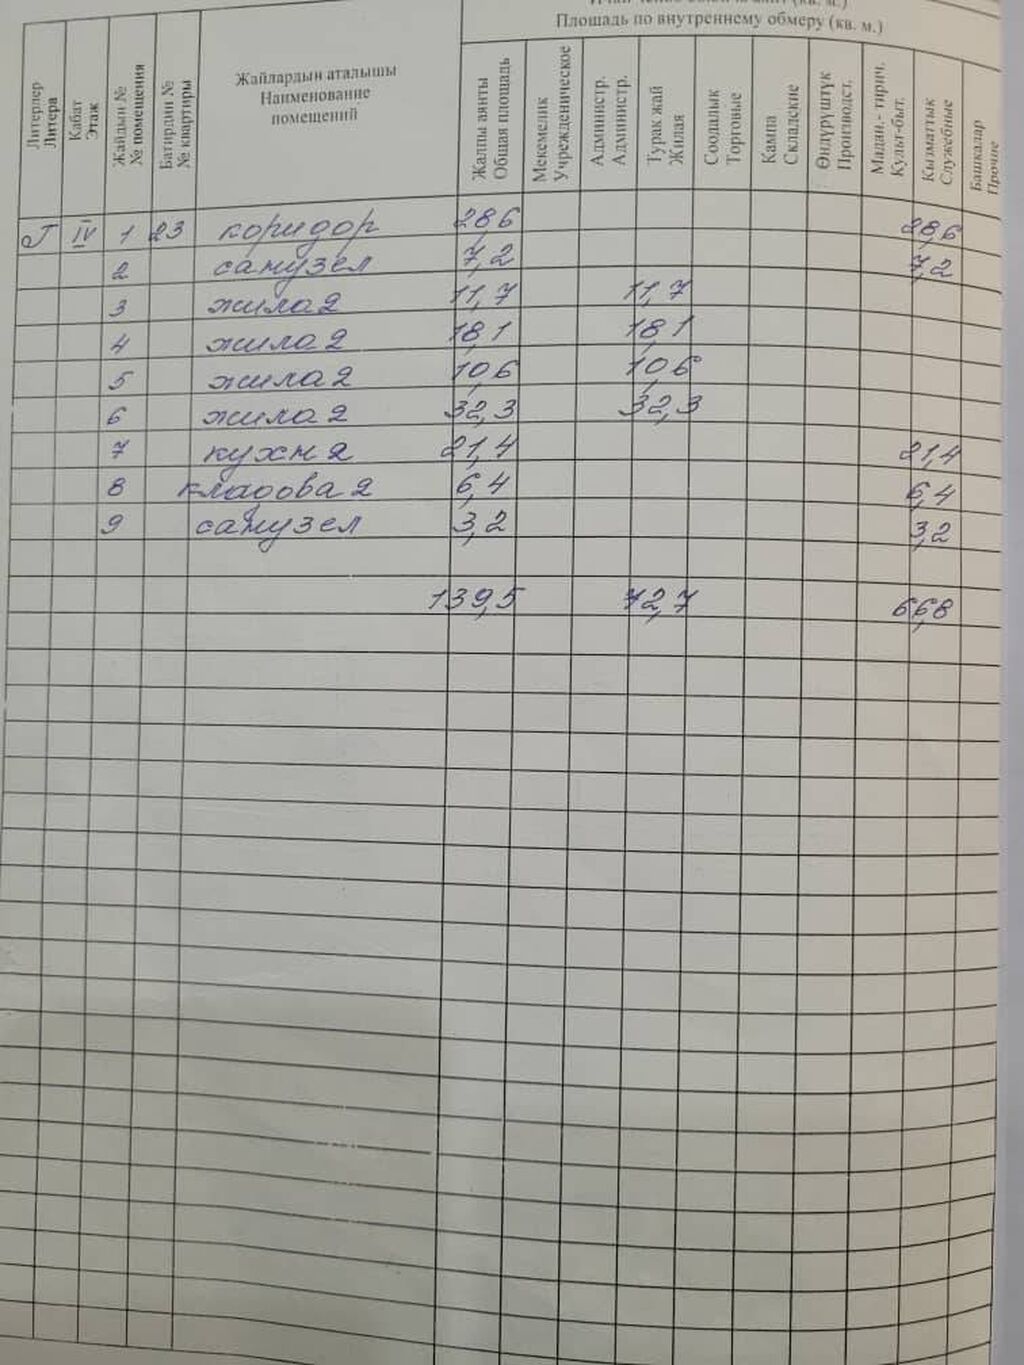 Площадь по внутреннему обмеру (кв. м.)
Литерлер
Литера
Кабат
Этаж
Жайдын №
№ помещения
Батирдин №
№ квартиры
Жайлардын аталышы
Наименование
помещений
Жалпы аянты
Общая площадь
Мекемелик
Учрежденическое
Администр.
Администр.
Турак жай
Жилая
Соодалык
Торговые
Кампа
Складские
Өндүрүштүк
Производст.
Мадан.- тирич.
Культ-быт.
Кызматтык
Служебные
Башкалар
Прочие
Г IV 1 23 коридор 28,6 28,6
2 санузел 7,2 7,2
3 жилая 11,7 11,7
4 жилая 18,1 18,1
5 жилая 10,6 10,6
6 жилая 32,3 32,3
7 кухня 21,4 21,4
8 кладовая 6,4 6,4
9 санузел 3,2 3,2
139,5 72,7 66,8